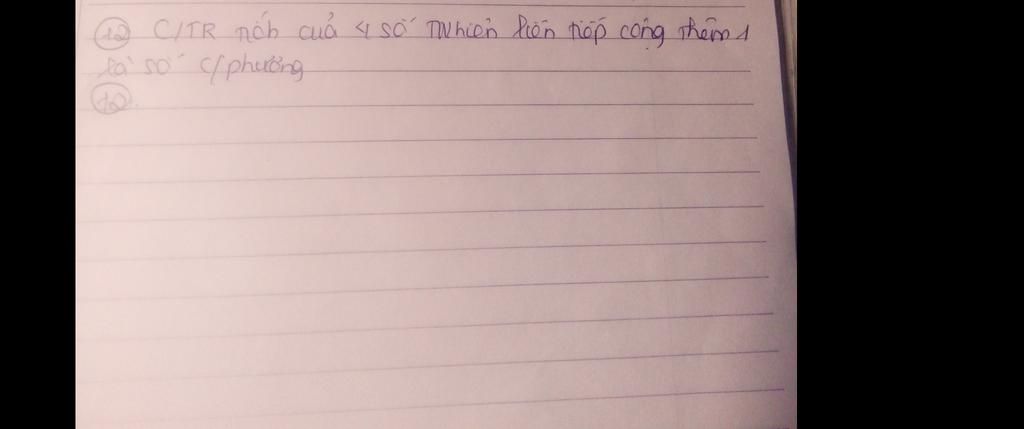 (12) C/TR tích cuả 4 số TNhiên liên tiếp cộng thêm 1
là số c/phương
(12)